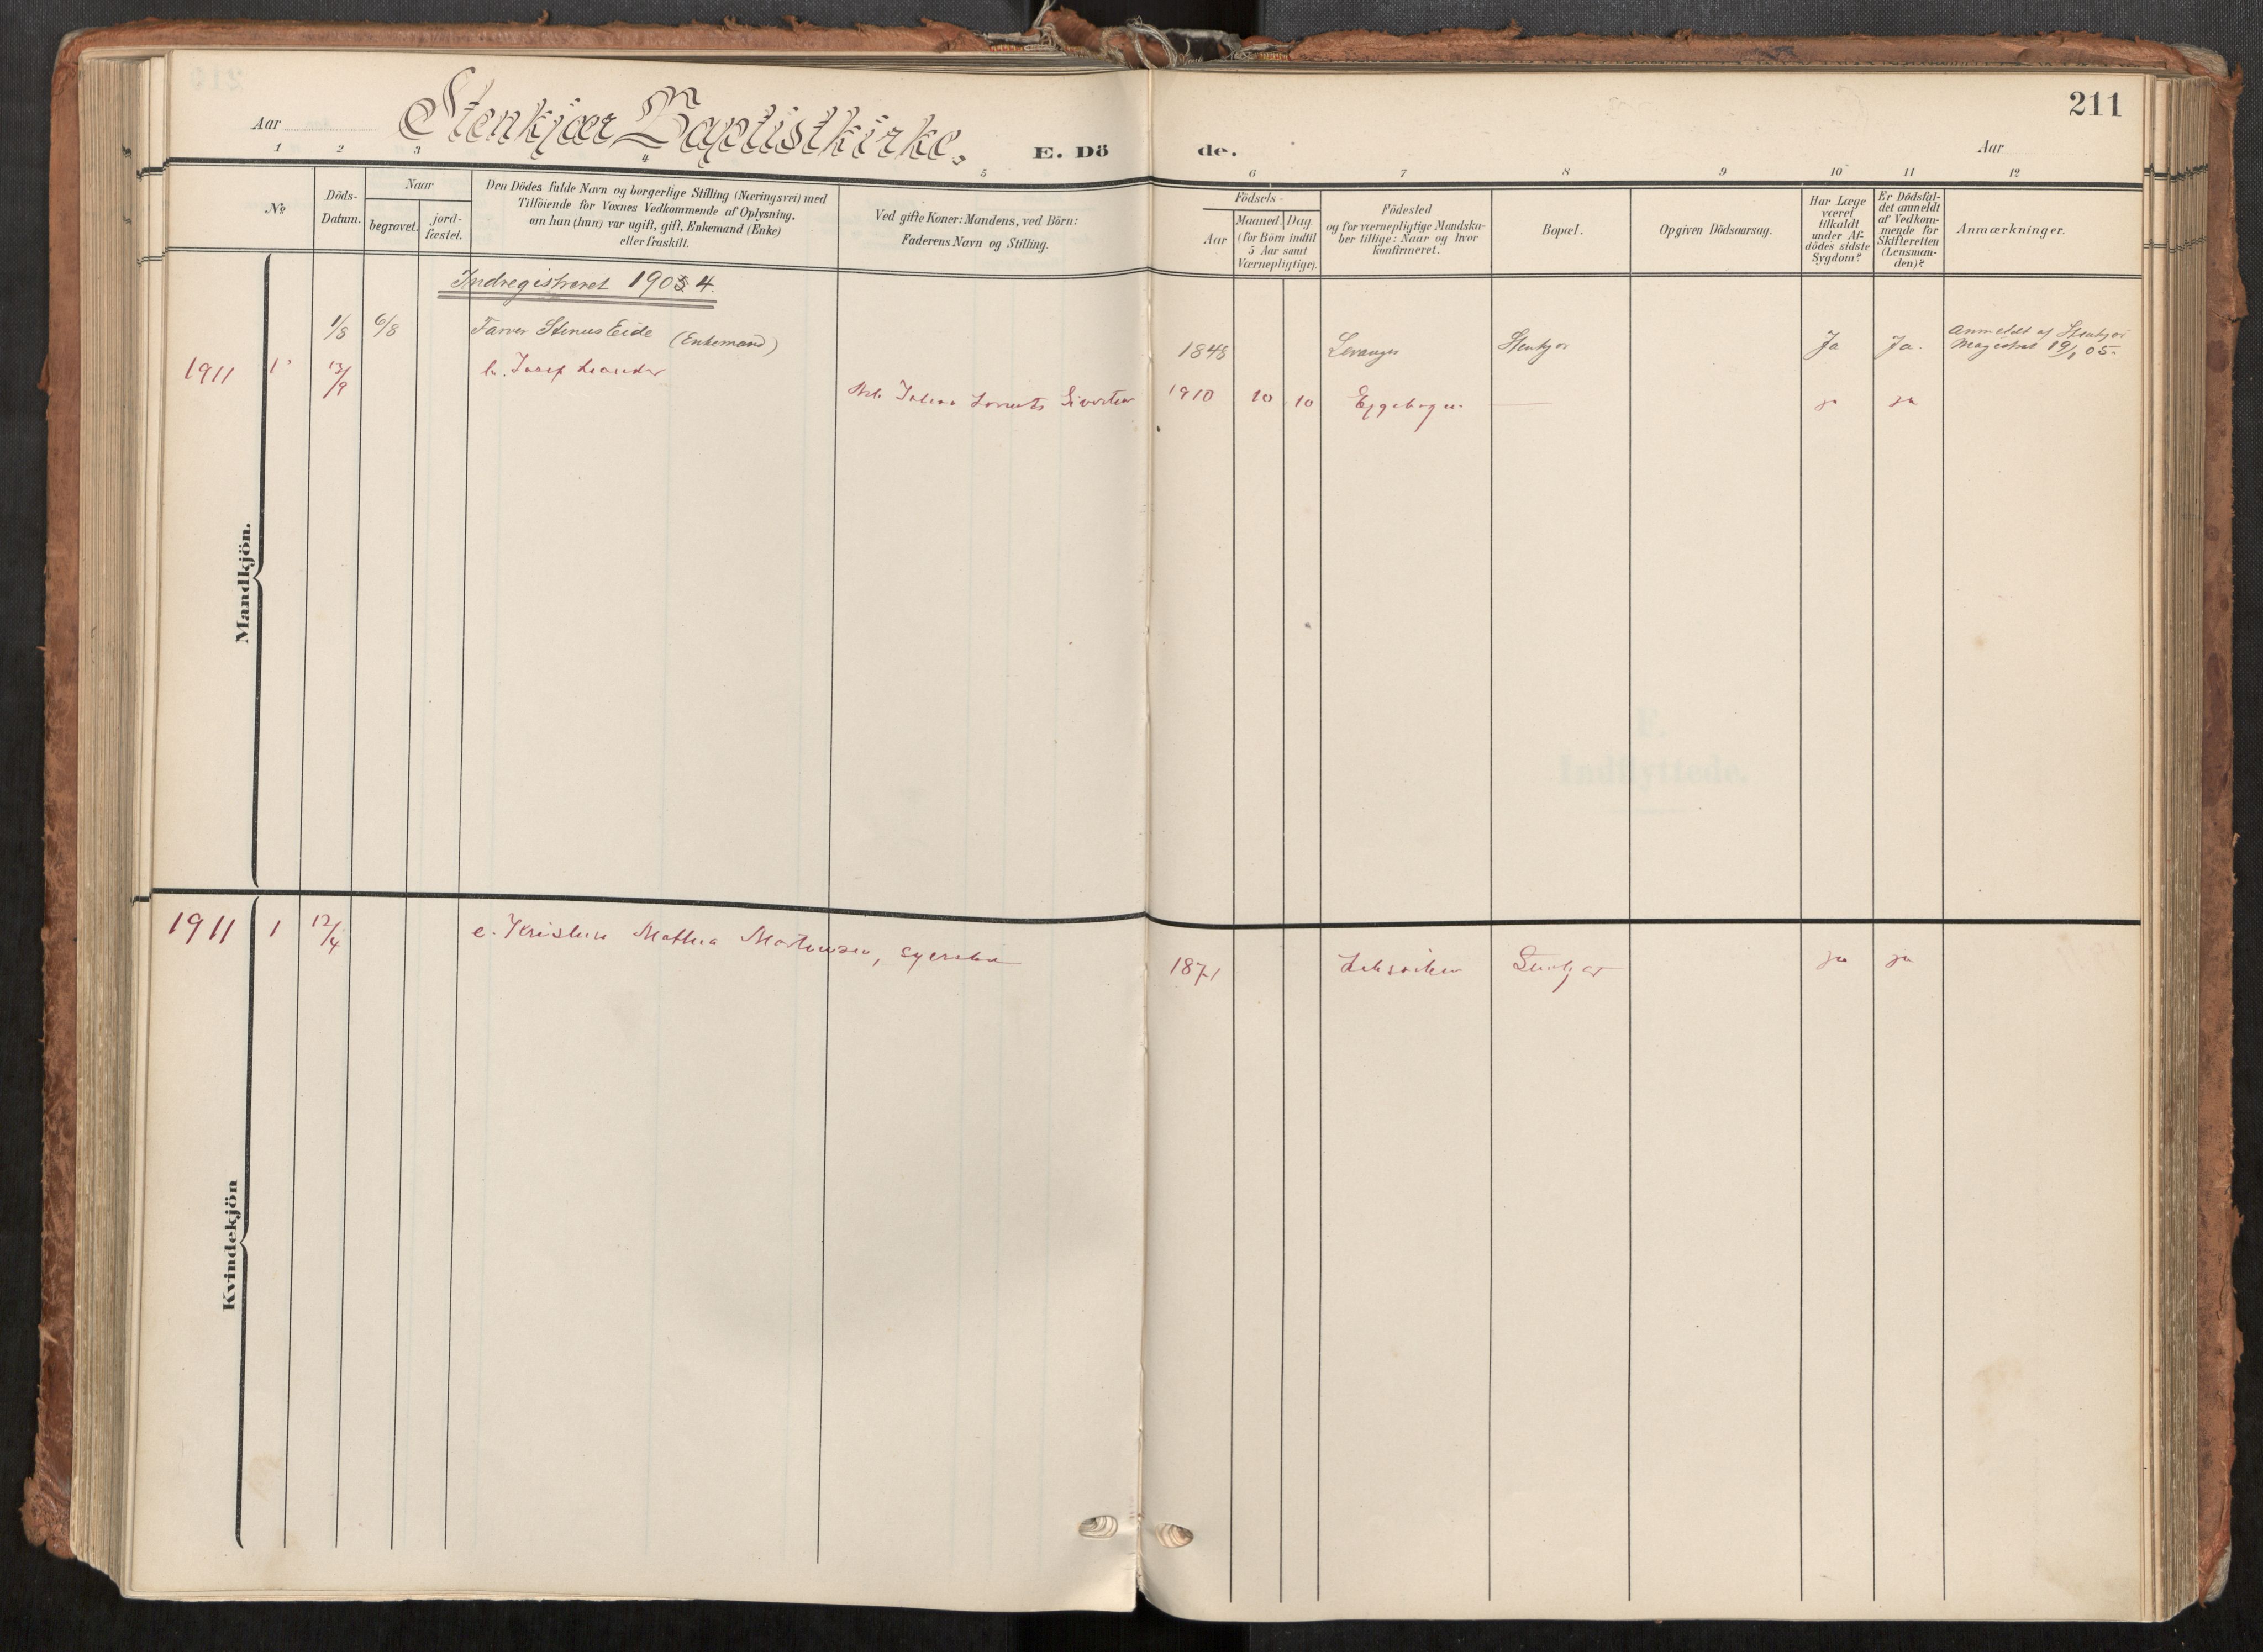 211
Aar
Stenkjær Baptistkirke.
E. Dö de.
Aar
1 2 3 4 5 6 7 8 9 10 11 12
No
Döds-
Datum.
Naar
begravet.
jord-
fæstet.
Den Dödes fulde Navn og borgerlige Stilling (Næringsvei) med
Tilföiende for Voxnes Vedkommende af Oplysning,
om han (hun) var ugift, gift, Enkemand (Enke)
eller fraskilt.
Ved gifte Koner: Mandens, ved Börn:
Faderens Navn og Stilling.
Födsels-
Aar
Maaned.
Dag.
(for Börn indtil
5 Aar samt
Værnepligtige).
Födested
og for værnepligtige Mandska-
ber tillige: Naar og hvor
konfirmeret.
Bopæl.
Opgiven Dödsaarsag.
Har Læge
været
tilkaldt
under Af-
dödes sidste
Sygdom?
Er Dödsfal-
det anmeldt
af Vedkom-
mende for
Skifteretten
(Lensman-
den)?
Anmærkninger.
Indregistreret 1904.
1/8 6/8 Farver Stenus Eide (Enkemand) 1848 Levanger Stenkjær Ja Ja. Anmeldt af Stenkjær
Magistrat 19/1 05.
1911 1 13/9 Josef Leander Sivertsen 1910 10 10 Eggebogen — ja ja
Mandkjön.
1911 1 12/4 e. Kristine Mathea Mortensen, syerske 1871 Leksviken Stenkjær ja ja
Kvindekjön
F.
Indflyttede.